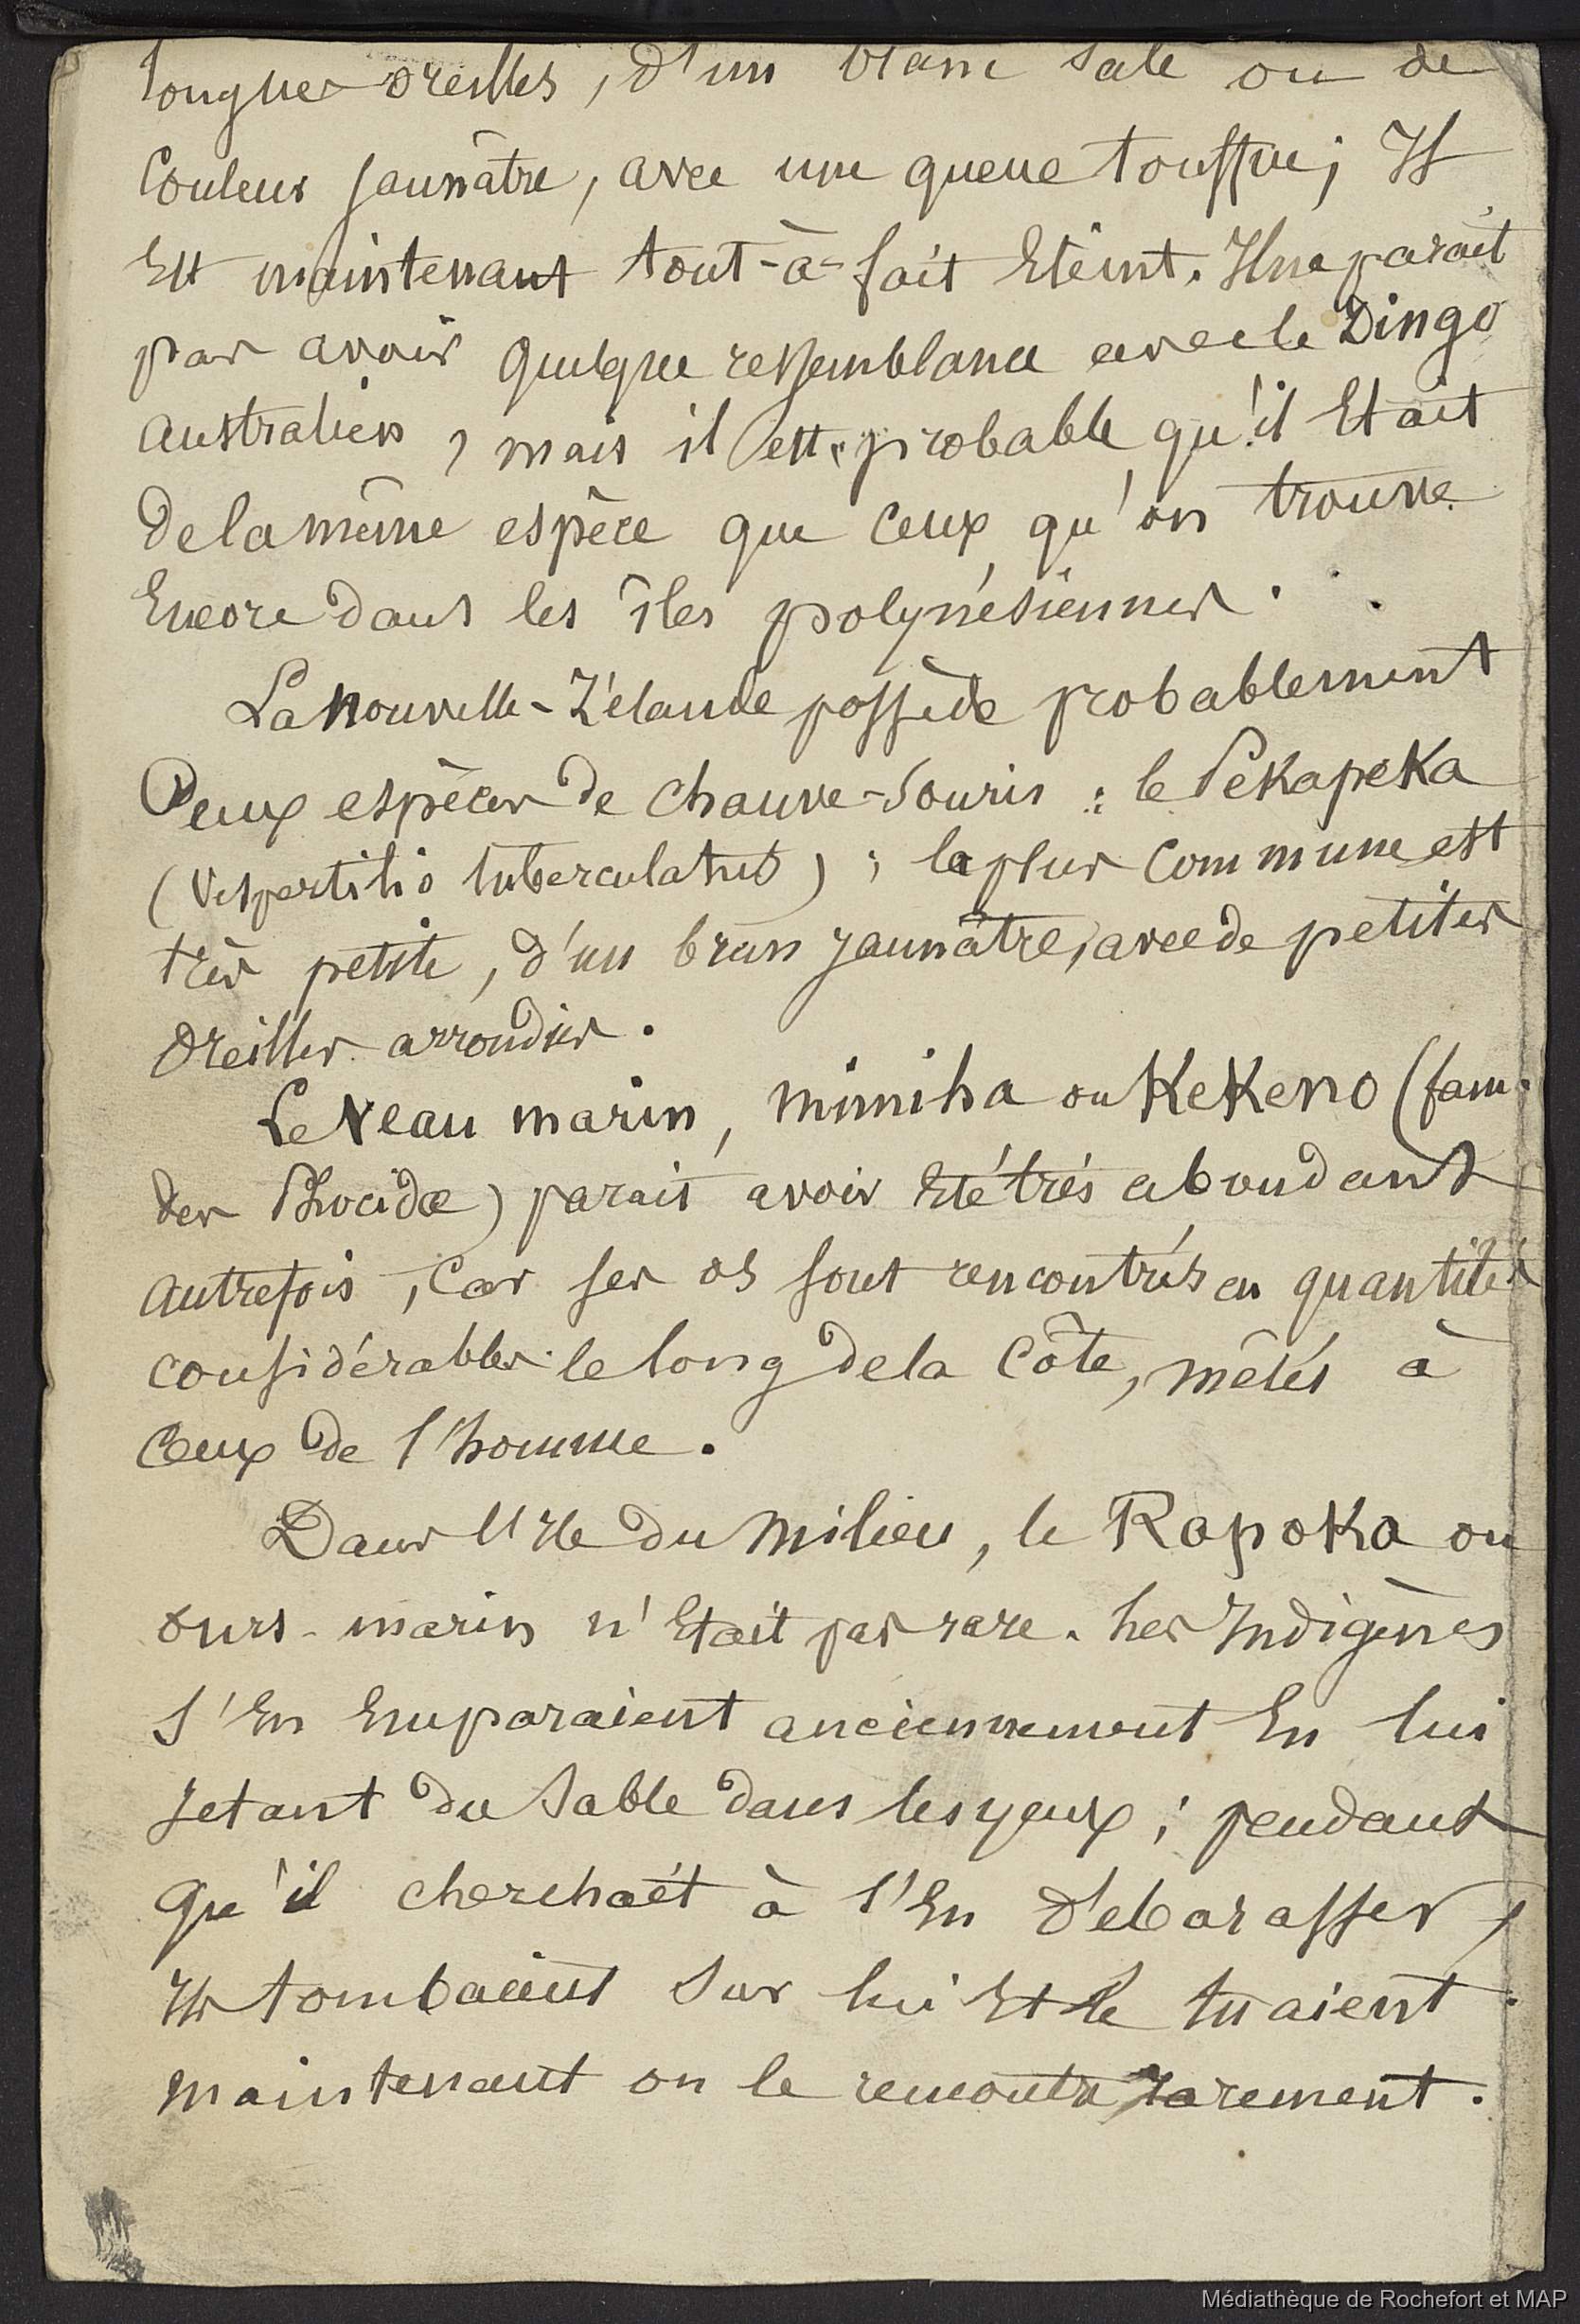 longues oreilles, d'un blanc sale ou de
Couleur jaunâtre, avec une queue touffue; Il
Est maintenant tout-à-fait Eteint. Il ne parait
pas avoir quelque ressemblance avec le Dingo
australien, mais il est probable qu'il Etait
De la même espèce que ceux qu'on trouve
Encore dans les îles polynésiennes.
La Nouvelle-Zélande possède probablement
Deux espèces de chauve-souris : le Pekapeka
(Vespertilio tuberculatus) ; la plus commune est
très petite, d'un brun jaunâtre, avec de petites
Oreilles arrondies.
Le Veau marin, mimiha ou KeKeno (fam.
des Phocidae) parait avoir Eté très abondant
autrefois, Car ses os sont rencontrés en quantités
considérables le long de la Côte, mêlés à
Ceux de l'homme.
Dans l'Ile du Milieu, le RapoKa ou
ours-marin n'Etait pas rare. Les Indigènes
s'En Emparaient anciennement En lui
jetant du Sable dans les yeux ; pendant
qu'il cherchait à s'En débarasser,
Ils tombaient sur lui Et le tuaient.
Maintenant on le rencontre rarement.
Médiathèque de Rochefort et MAP